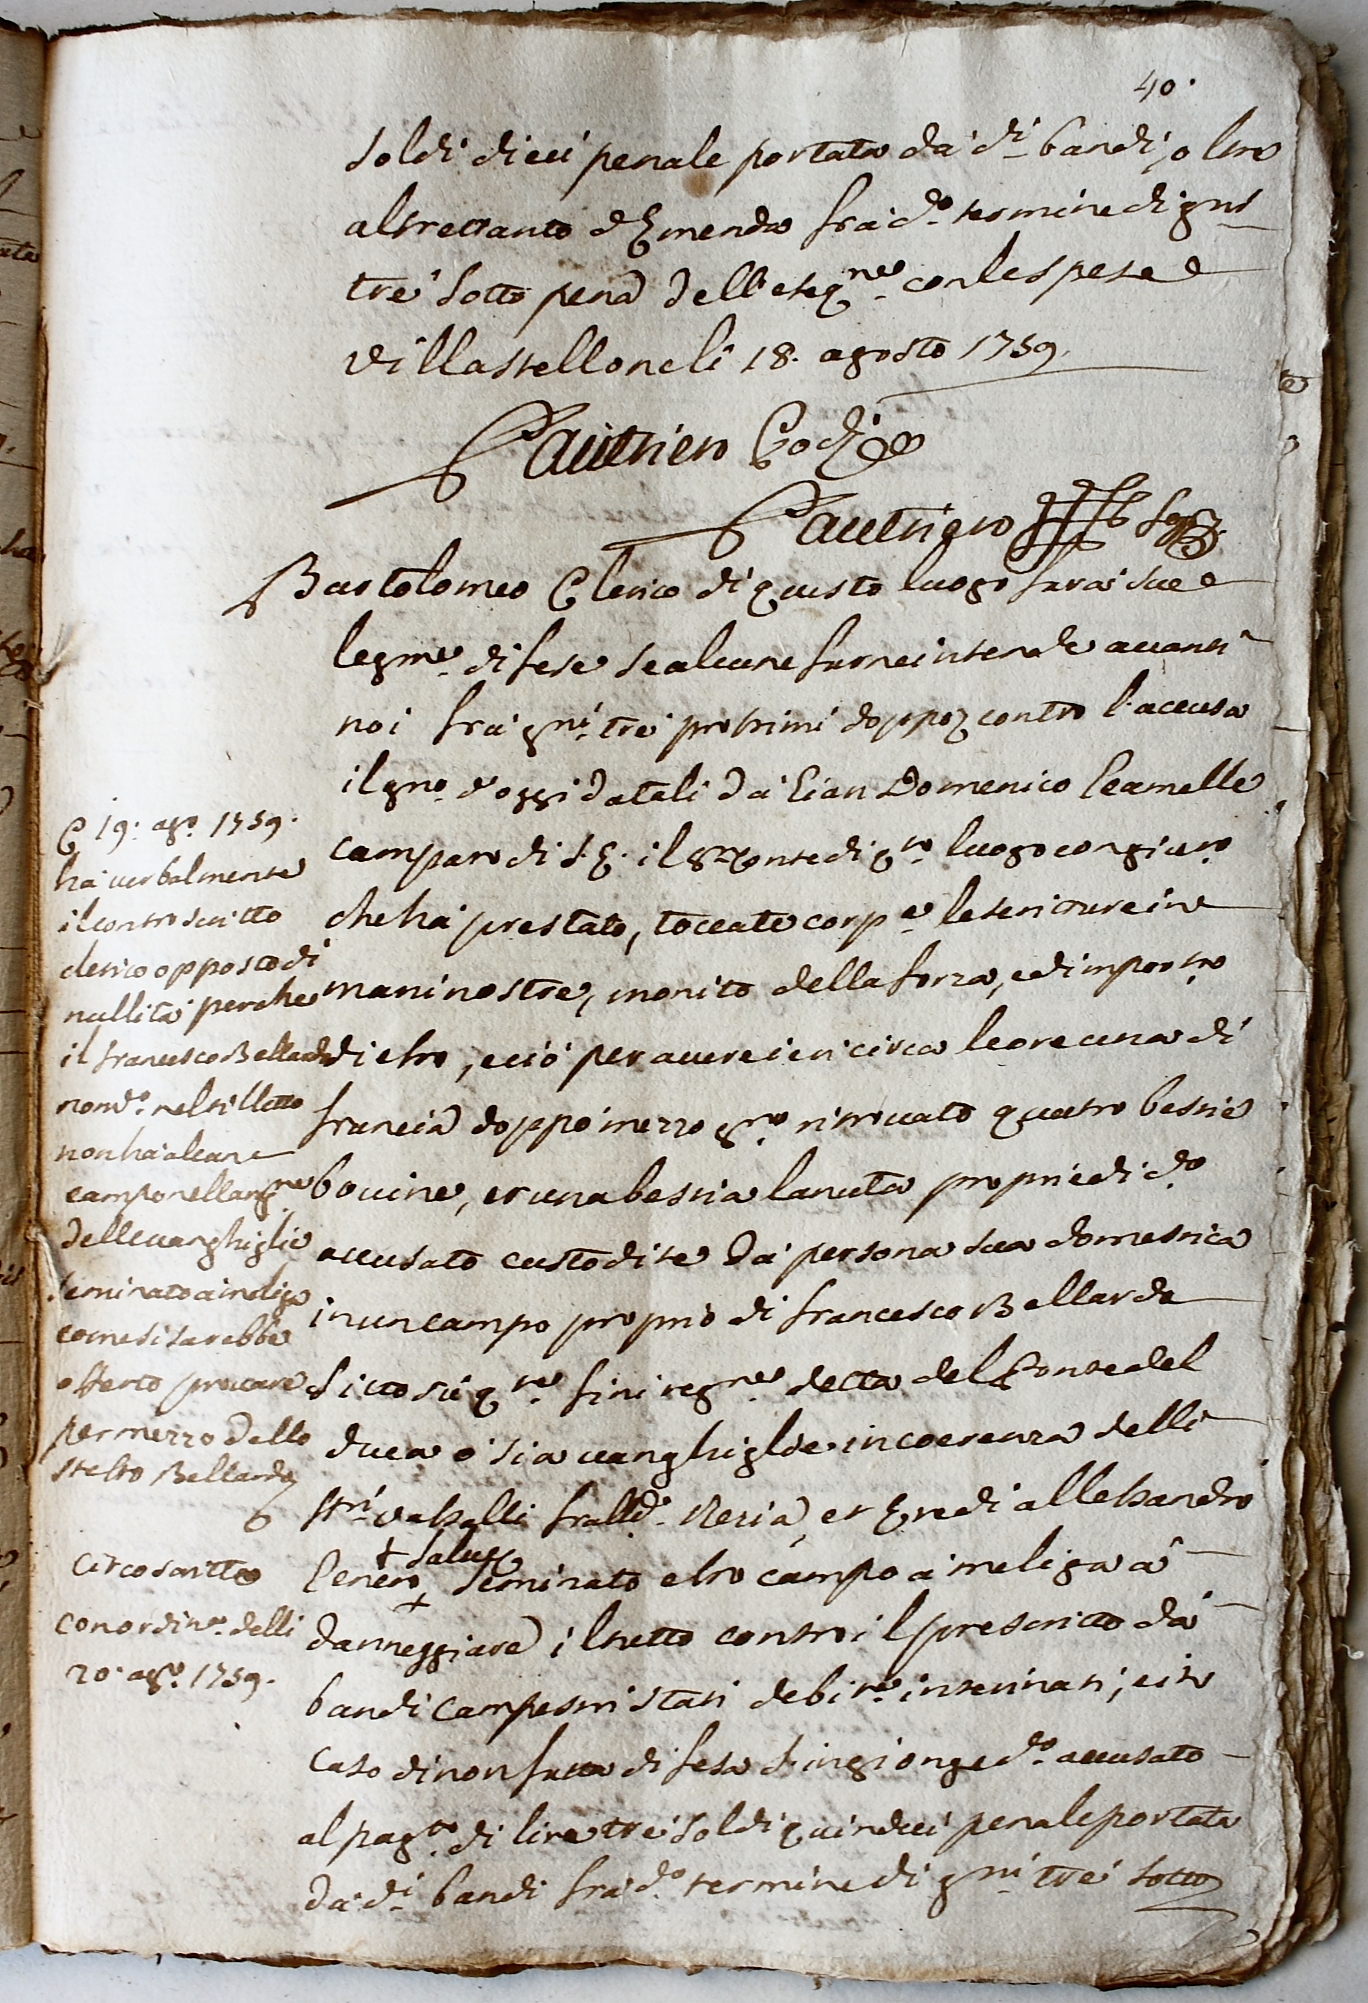 40.
soldi dieci penale portata da d.i bandi, oltre
altrettanto d'Emenda frà d.o termine di gni
tré sotto pena dell'eseq.ne con le spese
Villastellone li 18. agosto 1759.
Gautriero
Gautriero Seg.
Bartolomeo Clerico di questo luogo farà sue
legme. difese se alcune farne intende avanti
noi frà gni. tré prossimi doppo contro l'accusa
il gno. d'oggi datali da Gian Domenico
camparo di S.E. il Sr. Conte di qto. luogo con giuro
che hà prestato, toccate corp.e le scritture in
mani nostre, monito della forza, ed import.o
di esso, e ciò per avere ieri circa le ore una di
francia doppo mezzo gno. ritrovato quatro bestie
bovine, et una bestia lanuta proprie di d.o
accusato custodite da persona sua domestica
in un campo proprio di Francesco Bellardo
sitto sù q.te fini reg.ne detta del Ponte del
duca o' sia vanghiglie in coerenza delli
Sri. Vassalli fralli. et Eredi allessandro
+ salvo
Cenero, seminato esso campo a meliga a
danneggiare il tutto contro il prescritto da
bandi campestri stati debit.e interinati, e in
caso di non fatta difesa s'ingionge d.o accusato
al pag.to di lire tré soldi quindeci penale portata
da d.i bandi frà d.o termine di gni tré sotto
C 19. ag.o 1759.
hà verbalmente
il controscritto
clerico opposto di
nullità perche
il francesco Bellardo
nom.o nel billetto
non hà alcun
campo nella reg.ne
delle vanghiglie
seminato a meliga
come si sarebbe
offerto provare
per mezzo dello
stesso Bellardo
Circoscritto
con ordin.a delli
20. ag.o 1759.